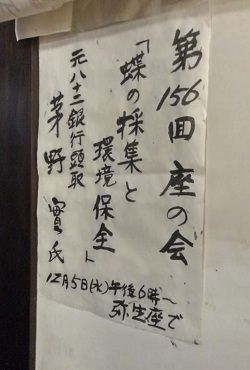 第156回 座の会
「蝶の採集と
環境保全」
元八十二銀行頭取
茅野 實氏
12月5日(水)午後6時〜
弥生座で